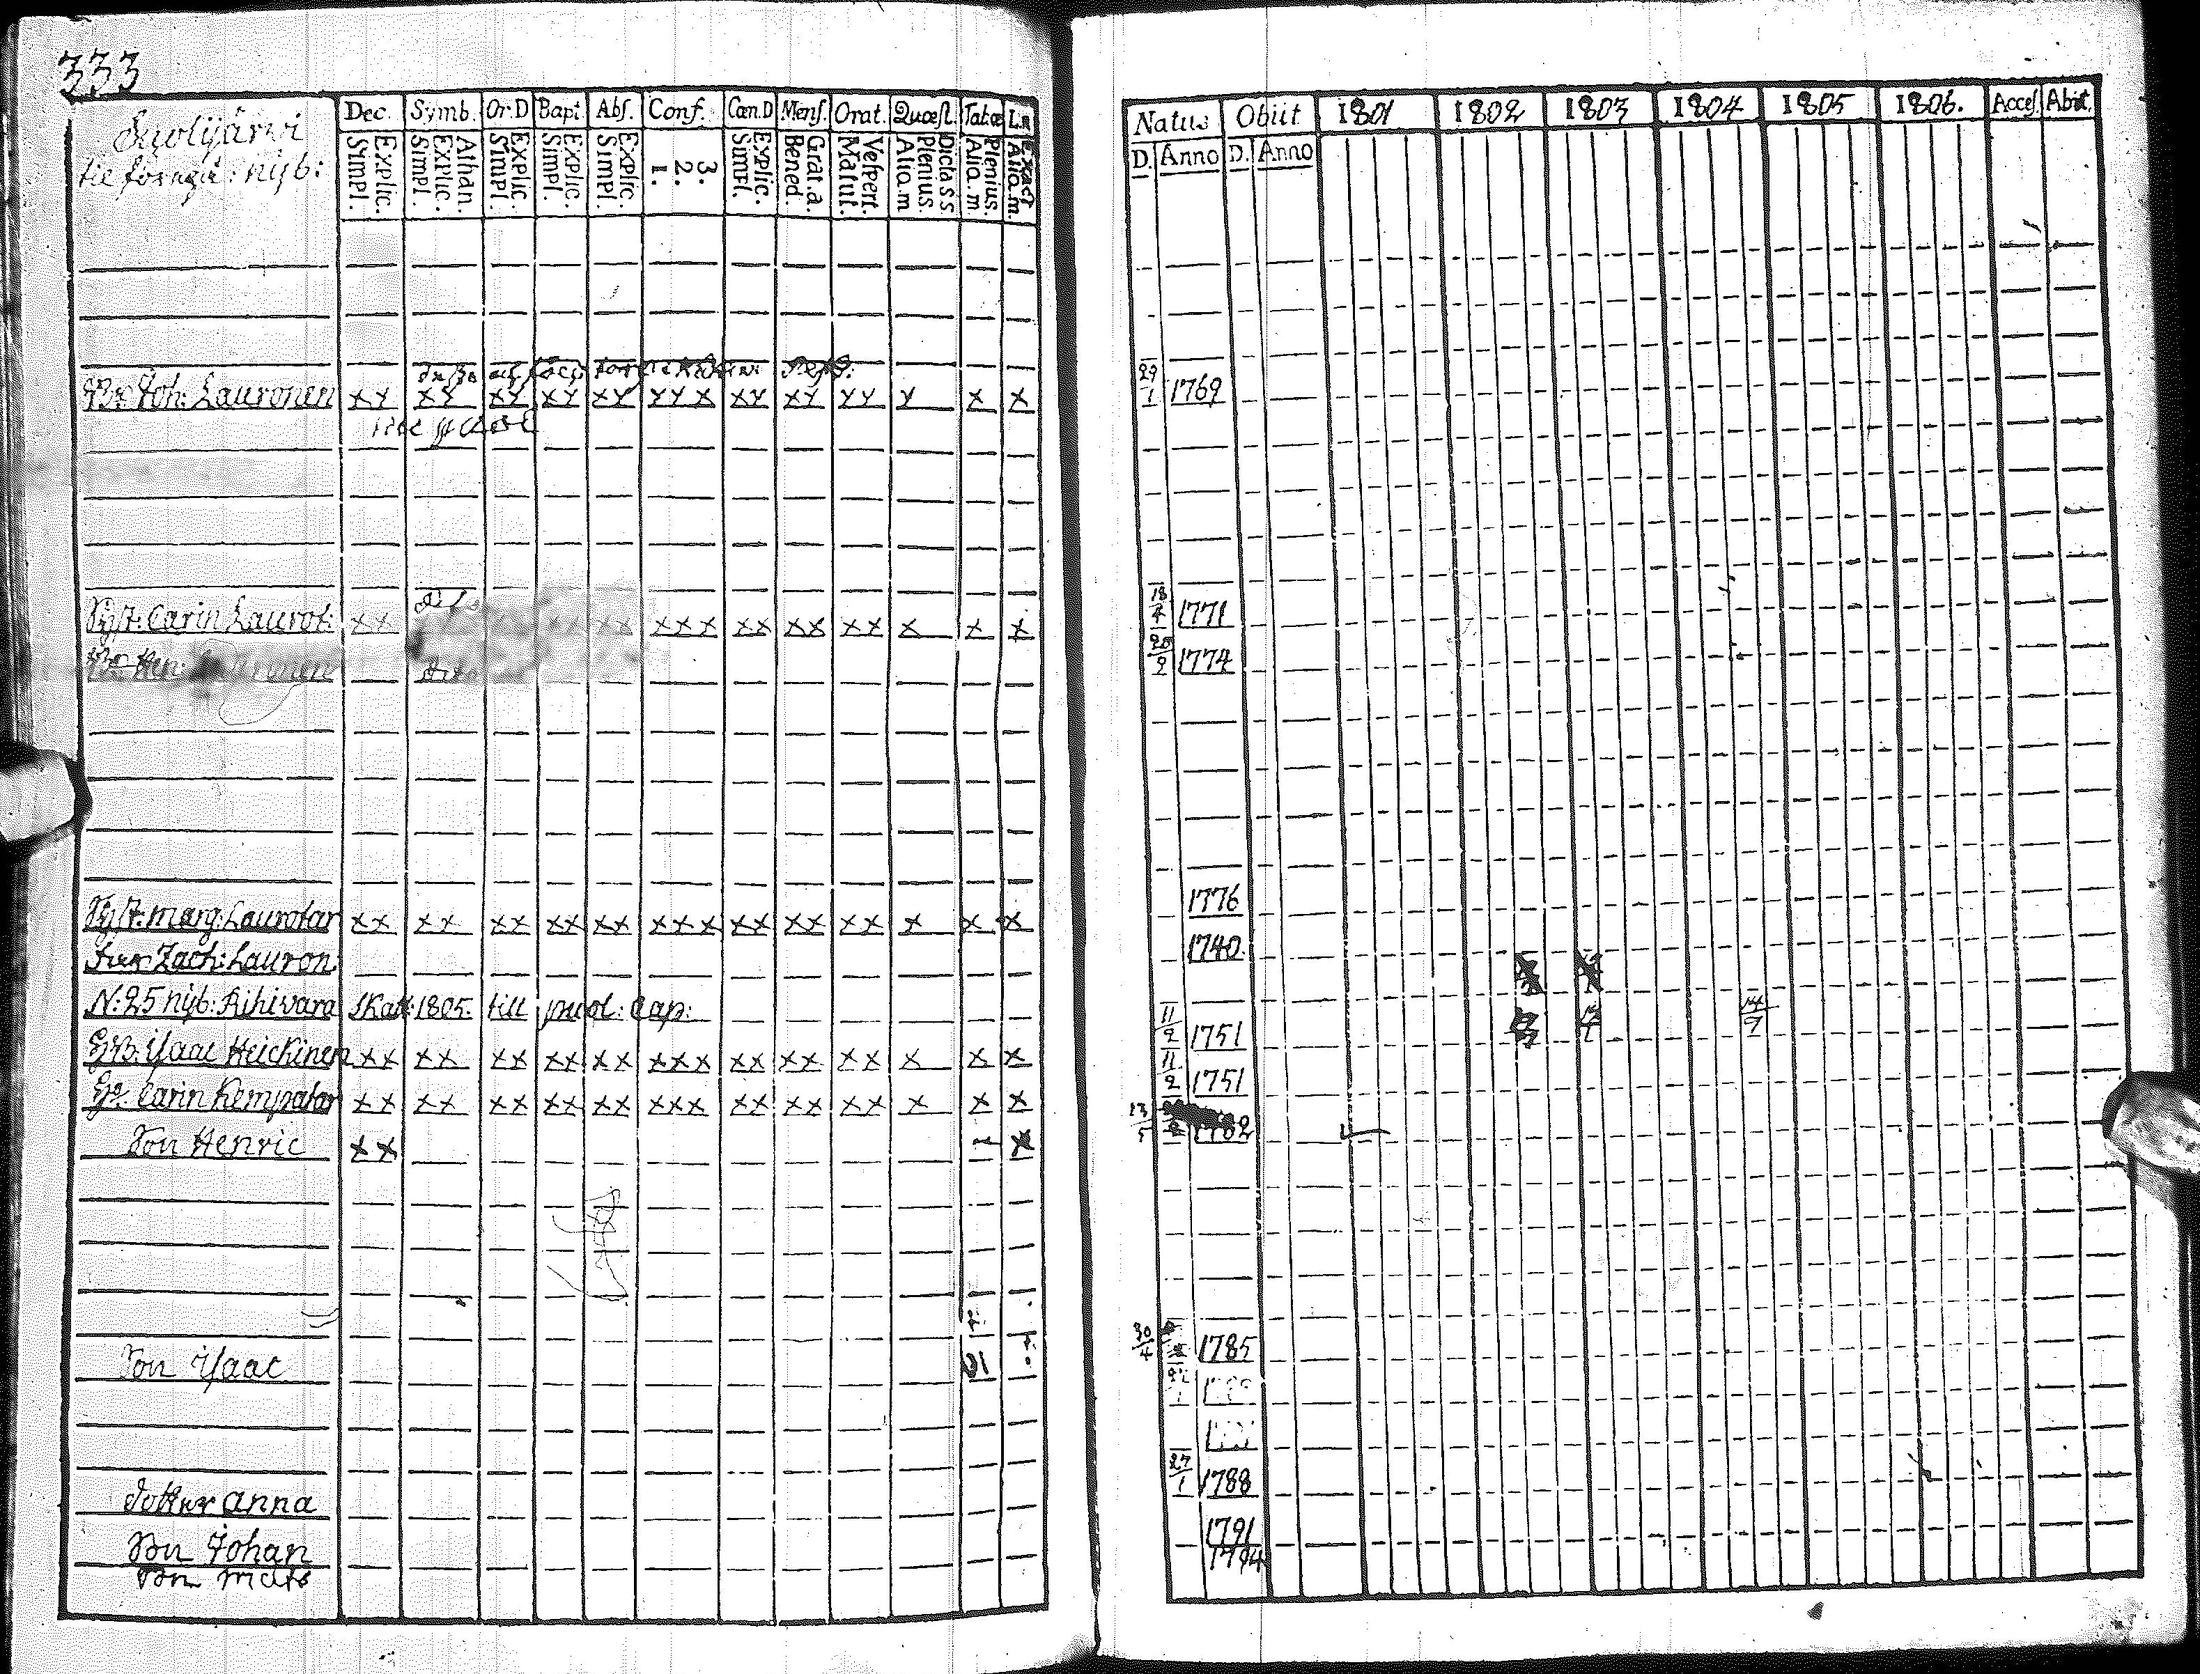 333
Dec. Symb. Or.D Bapt. Abs. Conf. Cœn.D Mens. Orat. Quæst. Tabœ
Explic. Simpl. Athan. Explic. Simpl. Explic. Simpl. Explic. Simpl. Explic. Simpl. 3. 2. 1. Explic. Simpl. Grat.a. Bened. Vespert. Matut. Dicta S S Plenius. Aliq.m Plenius. Aliq.m. Exact Aliq.m.
Natus Obiit 1801 1802 1803 1804 1805 1806. Acces. Abiit.
D. Anno D. Anno
Suolijärvi
nÿb:
Br. Joh: Lauronen xx xx xx xx xx xxx xx xx xx x x x 29/1 1769
Syst: Carin Laurot: xx xx xx xxx xx xx xx x x x 18/4 1771
Br Hen: 1774
Syst: marg: Laurotar xx xx xx xx xx xxx xx xx xx x x x 1776
Zach: Lauron: 1740
N: 25 nÿb: Rihivara Skatt: 1805. till
HB. Isaac Heickinen xx xx xx xx xx xxx xx xx xx x x x 11/2 1751
Hu. Carin Kempatar xx xx xx xx xx xxx xx xx xx x x x 11/2 1751
Son Henric xx x 13/5
Son Isaac 30/4 1785
Dotter Anna 27/1 1788
Son Johan 1791
Son mats 1794